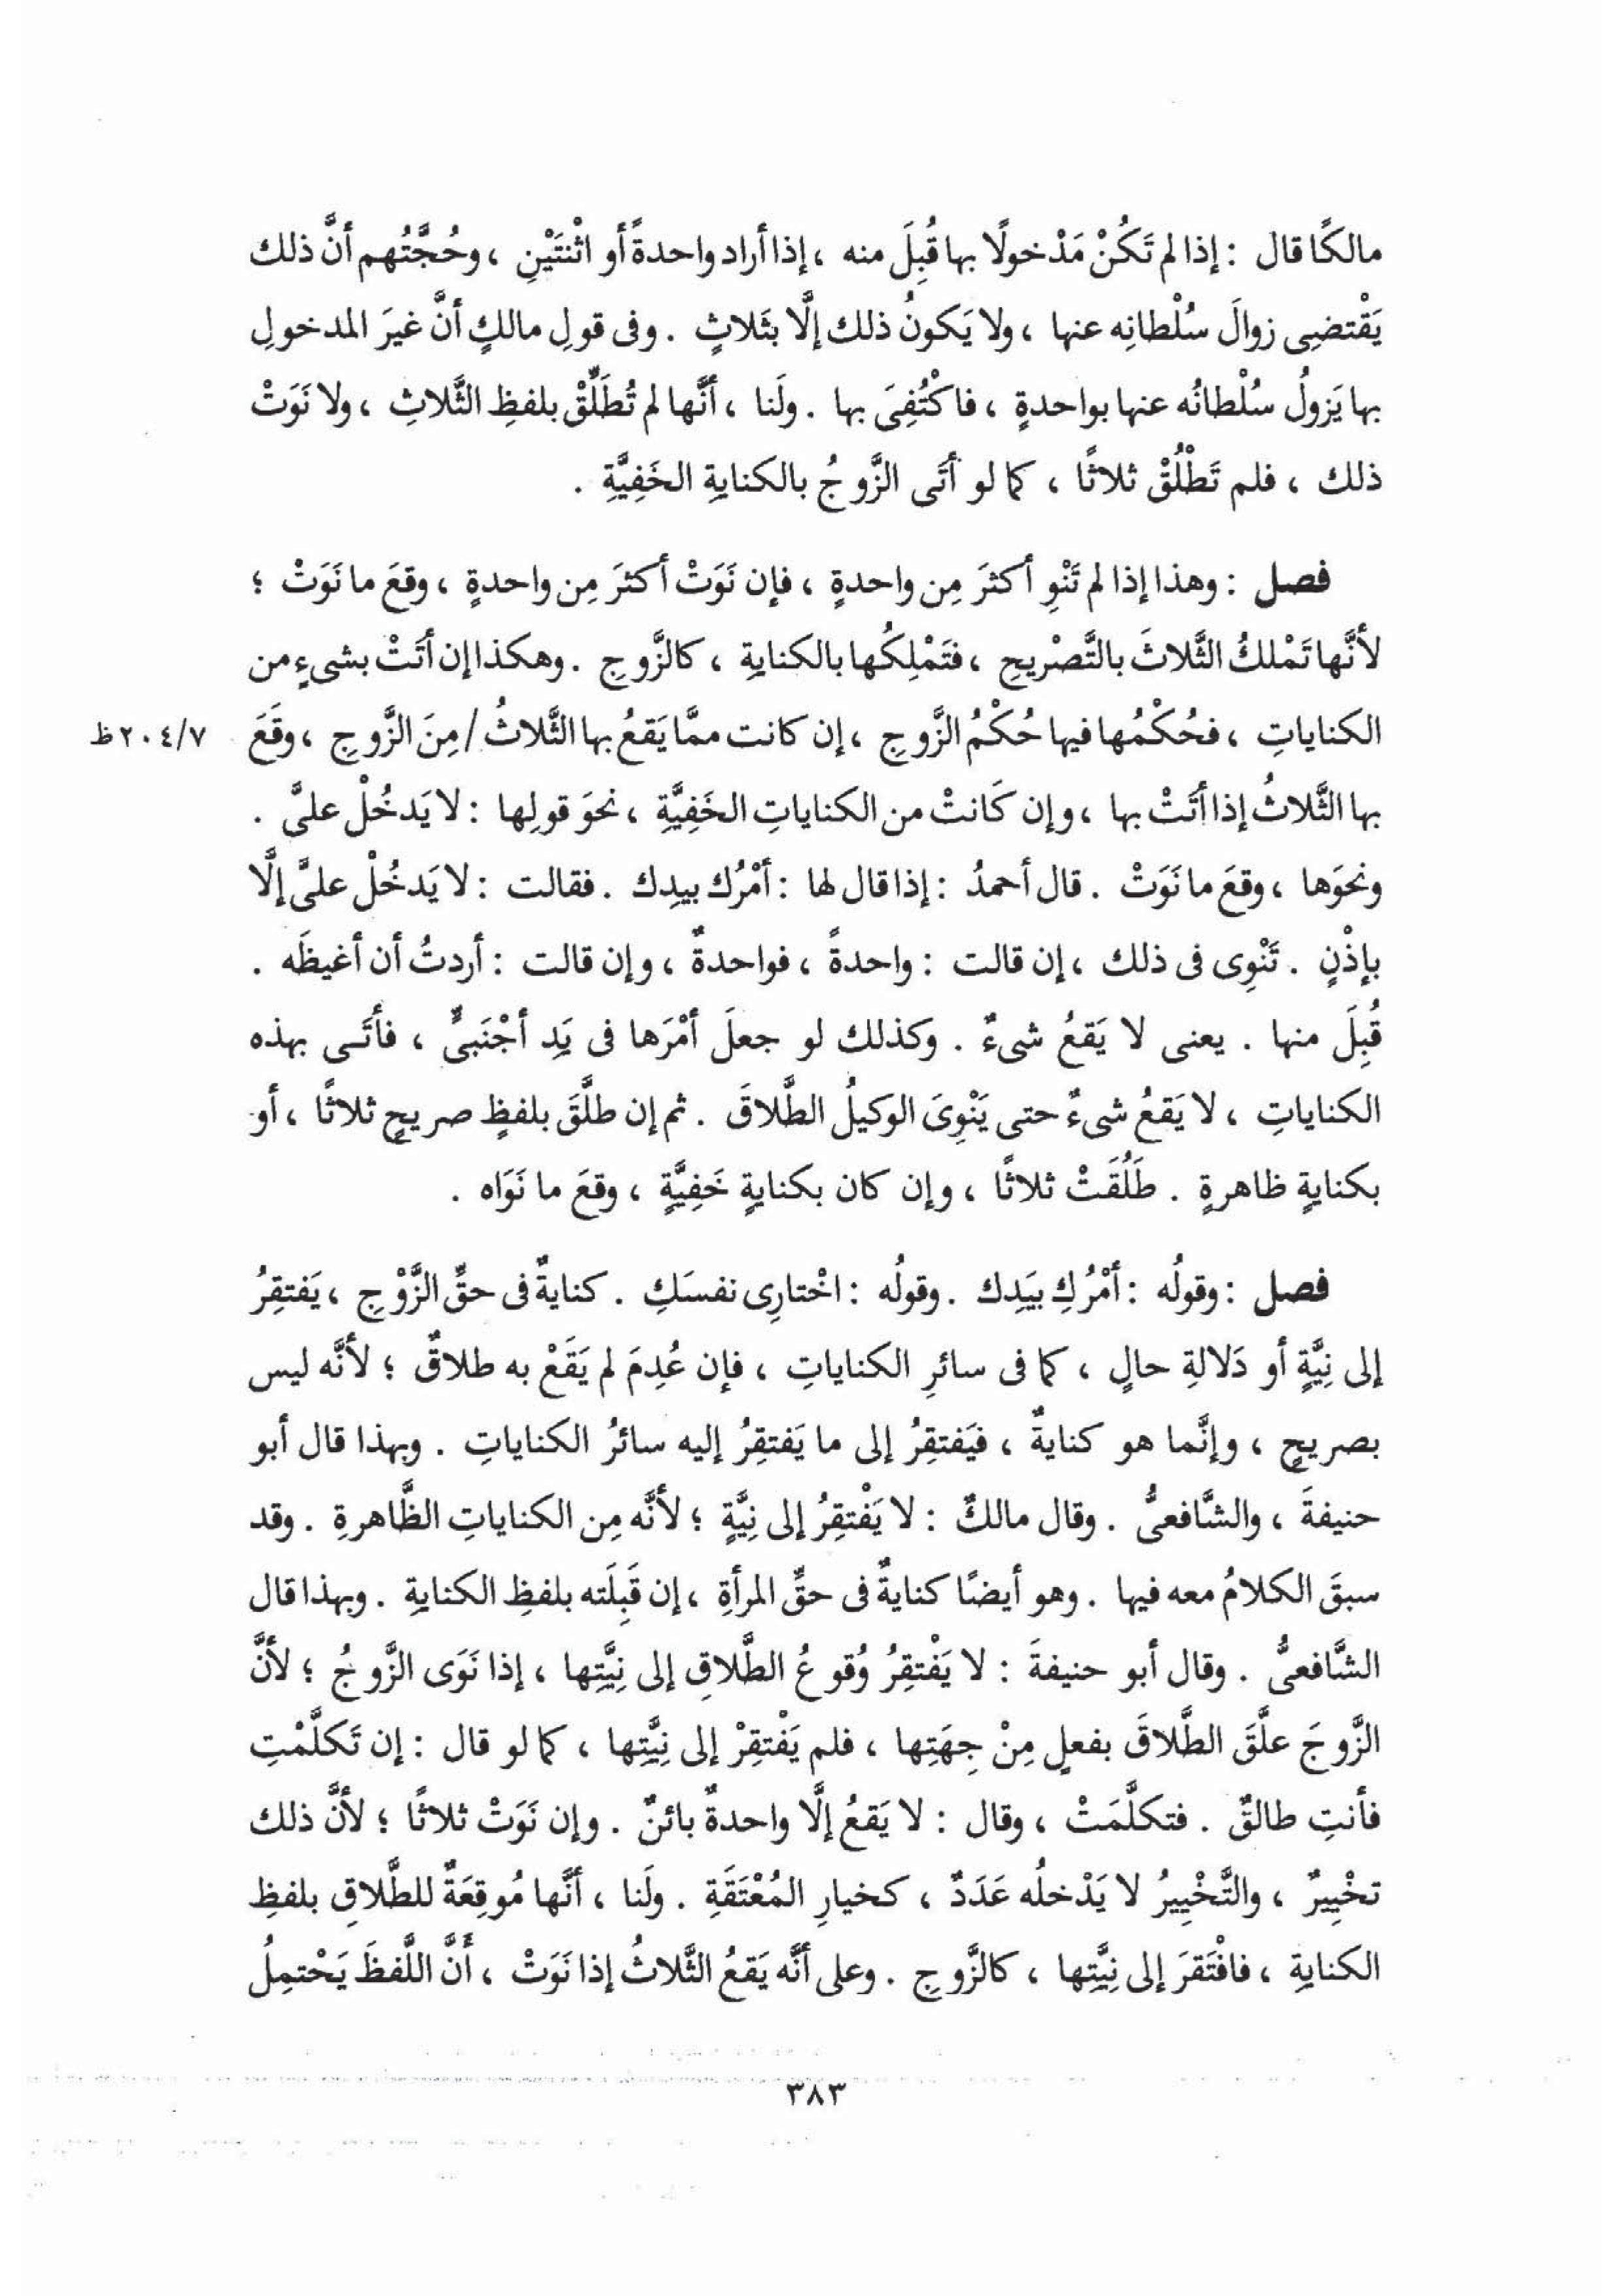 مالكًا قال : إذا لم تَكُنْ مَدْخولًا بها قُبِلَ منه ، إذا أراد واحدةً أو اثْنتَيْنِ ، وحُجَّتُهم أنَّ ذلك
يَقْتضِى زوالَ سُلْطانِه عنها ، ولا يَكونُ ذلك إلَّا بثَلاثٍ . وفى قولِ مالكٍ أنَّ غيرَ المدخولِ
بها يَزولُ سُلْطانُه عنها بواحدةٍ ، فاكْتُفِىَ بها . ولَنا ، أنَّها لم تُطَلِّقْ بلفظِ الثَّلاثِ ، ولا نَوَتْ
ذلك ، فلم تَطْلُقْ ثلاثًا ، كما لو أتَى الزَّوجُ بالكنايةِ الخَفِيَّةِ .
فصل : وهذا إذا لم تَنْوِ أكثرَ مِن واحدةٍ ، فإن نَوَتْ أكثرَ مِن واحدةٍ ، وقعَ ما نَوَتْ ؛
لأنَّها تَمْلكُ الثَّلاثَ بالتَّصْريحِ ، فتَمْلِكُها بالكنايةِ ، كالزَّوجِ . وهكذا إن أتَتْ بشىءٍ من
الكناياتِ ، فحُكْمُها فيها حُكْمُ الزَّوجِ ، إن كانت ممَّا يَقعُ بها الثَّلاثُ / مِنَ الزَّوجِ ، وقَعَ ٢٠٤/٧ظ
بها الثَّلاثُ إذا أتَتْ بها ، وإن كَانتْ من الكناياتِ الخَفِيَّةِ ، نحوَ قولِها : لا يَدخُلْ علىَّ .
ونحوَها ، وقعَ ما نَوَتْ . قال أحمدُ : إذا قال لها : أمْرُك بيدِك . فقالت : لا يَدخُلْ علىَّ إلَّا
بإذْنٍ . تَنْوِى فى ذلك ، إن قالت : واحدةً ، فواحدةٌ ، وإن قالت : أردتُ أن أغيظَه .
قُبِلَ منها . يعنى لا يَقعُ شىءٌ . وكذلك لو جعلَ أمْرَها فى يَدِ أجْنَبىٍّ ، فأتَـى بهذه
الكناياتِ ، لا يَقعُ شىءٌ حتى يَنْوِىَ الوكيلُ الطَّلاقَ . ثم إن طلَّقَ بلفظٍ صريحٍ ثلاثًا ، أو
بكنايةٍ ظاهرةٍ . طَلُقَتْ ثلاثًا ، وإن كان بكنايةٍ خَفِيَّةٍ ، وقعَ ما نَوَاه .
فصل : وقولُه : أمْرُكِ بيَدِك . وقولُه : اخْتارِى نفسَكِ . كنايةٌ فى حقِّ الزَّوْجِ ، يَفتقِرُ
إلى نِيَّةٍ أو دَلالةِ حالٍ ، كما فى سائرِ الكناياتِ ، فإن عُدِمَ لم يَقَعْ به طلاقٌ ؛ لأنَّه ليس
بصريحٍ ، وإنَّما هو كنايةٌ ، فيَفتقِرُ إلى ما يَفتقِرُ إليه سائرُ الكناياتِ . وبهذا قال أبو
حنيفةَ ، والشَّافعىُّ . وقال مالكٌ : لا يَفْتقِرُ إلى نِيَّةٍ ؛ لأنَّه مِن الكناياتِ الظَّاهرةِ . وقد
سبقَ الكلامُ معه فيها . وهو أيضًا كنايةٌ فى حقِّ المرأةِ ، إن قَبِلَته بلفظِ الكنايةِ . وبهذا قال
الشَّافعىُّ . وقال أبو حنيفةَ : لا يَفْتقِرُ وُقوعُ الطَّلاقِ إلى نِيَّتِها ، إذا نَوَى الزَّوجُ ؛ لأنَّ
الزَّوجَ علَّقَ الطَّلاقَ بفعلٍ مِنْ جِهَتِها ، فلم يَفْتقِرْ إلى نِيَّتِها ، كما لو قال : إن تَكلَّمْتِ
فأنتِ طالقٌ . فتكلَّمَتْ ، وقال : لا يَقعُ إلَّا واحدةٌ بائنٌ . وإن نَوَتْ ثلاثًا ؛ لأنَّ ذلك
تخْيِيرٌ ، والتَّخْيِيرُ لا يَدْخلُه عَدَدٌ ، كخيارِ المُعْتَقَةِ . ولَنا ، أنَّها مُوقِعَةٌ للطَّلاقِ بلفظِ
الكنايةِ ، فافْتَقرَ إلى نِيَّتِها ، كالزَّوجِ . وعلى أنَّه يَقعُ الثَّلاثُ إذا نَوَتْ ، أَنَّ اللَّفظَ يَحْتمِلُ
٣٨٣